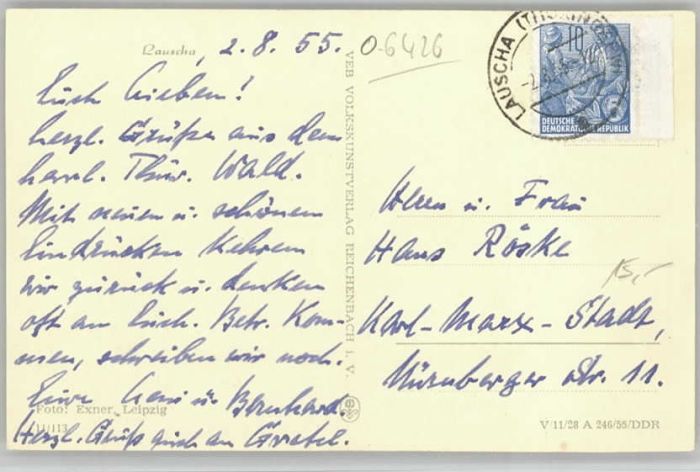 Lauscha, 2. 8. 55.
06426
Euch Lieben!
herzl. Grüße aus dem
herrl. Thür. Wald.
Mit neuen u. schönen
Eindrücken kehren
wir zurück u. denken
oft an Euch. Betr. Kom-
men, schreiben wir noch.
Eure u. Bernhard.
Herzl. Gruß auch an Gretel.
Foto: Exner, Leipzig
11/113
VEB VOLKSKUNSTVERLAG REICHENBACH I. V.
LAUSCHA
10
DEUTSCHE
DEMOKRATISCHE REPUBLIK
Herrn u. Frau
Hans Röske
15,-
Karl-Marx-Stadt,
Nürnberger Str. 11.
V 11/28 A 246/55/DDR